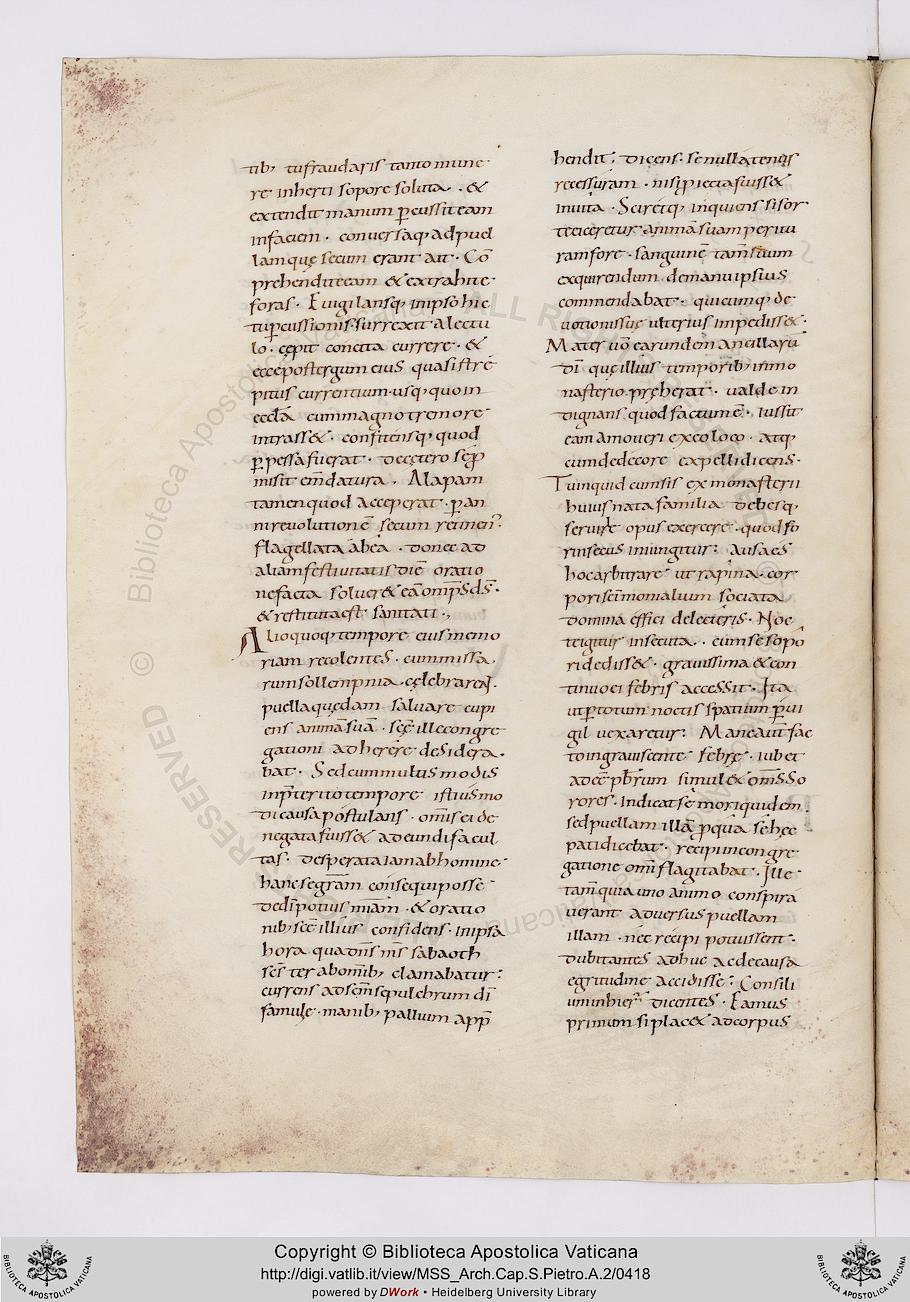 tib; tu fraudaris tanto mune
re inherti sopore soluta . &
extendit manum p̄cussit eam
in faciem . conversaq; ad puel
lam quę secum erant ait . Cō
prehendite eam & extrahite
foras . Evigilansq; in ipso hic
tu percussionis . surrexit a lectu
lo . cępit concita currere . &
ecce post tergum eius quasi strē
pitus currentium . usq; quo in
eccłā cum magno tremore
intrass& . confitensq; quod
p̄pessa fuerat . de cętero sęp
misit em̄datura . Alapam
tamen quod acceperat . p an
ni revolutionē secum retinen
flagellata abęa . donec ad
aliam festivitatis diē oratio
ne facta solver& eā omp̄s d̄s .
& restituta est sanitati .,
Alio quoq; tempore eius memo
riam recolentes . cum missa
rum sollempnia . cęlebrarent .
puella quędam salvare cupi
ens animā suā . scē ille congre
gationi adherere desidera
bat . Sed cum multis modis
in p̄terito tempore istius mo
di causa postulans . omīs ei de
negata fuiss& adeundi facul
tas . desperata iam ab homine
hanc se grām consequi posse
dedit potius miām . & oratio
nib; scē illius confidens . in ipsa
hora qua dn̄s n̄s sabaoth
scs ter ab omīb; clamabatur :
currens ad scm̄ sepulchrum dī
famulę . manib; pallium app̄
hendit ; dicens . se nullatenus
recessuram . nisi p̄iecta fuiss&
invita . Sciretq; inquiens si sor
te eiceretur animā suam peritu
ram fore . sanguinē tam̄ suum
exquirendum de manu ipsius
commendabat . quicumq; de
votionis suę ulterius impediss& .
Mater v̄o earundem ancillarū
dī quę illius temporib; in mo
nasterio pręherat . valde in
dignans quod factum ē . iussit
eam amoveri ex eo loco . atq;
cum dedecore expelli dicens .
Tu inquid cum sis ex monasterii
huius nata familia debesq;
servire opus exercere . quod fo
rinsecus iniungitur : Ausa es
hoc arbitrare ut rapina . cor
pori sc̄imonialium sociata
domina effici delecteris . Noc
te igitur insecuta . cum se sopo
ri dediss& . gravissima & con
tinuo ei febris accessit . Ita
ut p totum noctis spatium p̄vi
gil vexaretur : Mane aut fac
to ingravisc̄ente febre . iub&
adcē pb̄rum simul & om̄s so
rores . Indicat se mori quidem .
sed puellam illā p̄ qua se hęc
pati dicebat . recipi in congre
gatione omī flagitabat . Ille
tam̄ quia uno animo conspira
verant adversus puellam
illam . nec recipi potuissent .
dubitantes adhuc ac de causa
egritudine accidisse : Consili
um inhier̄ dicentes . Eamus
primum si plac& ad corpus
Copyright © Biblioteca Apostolica Vaticana
http://digi.vatlib.it/view/MSS_Arch.Cap.S.Pietro.A.2/0418
powered by DWork • Heidelberg University Library